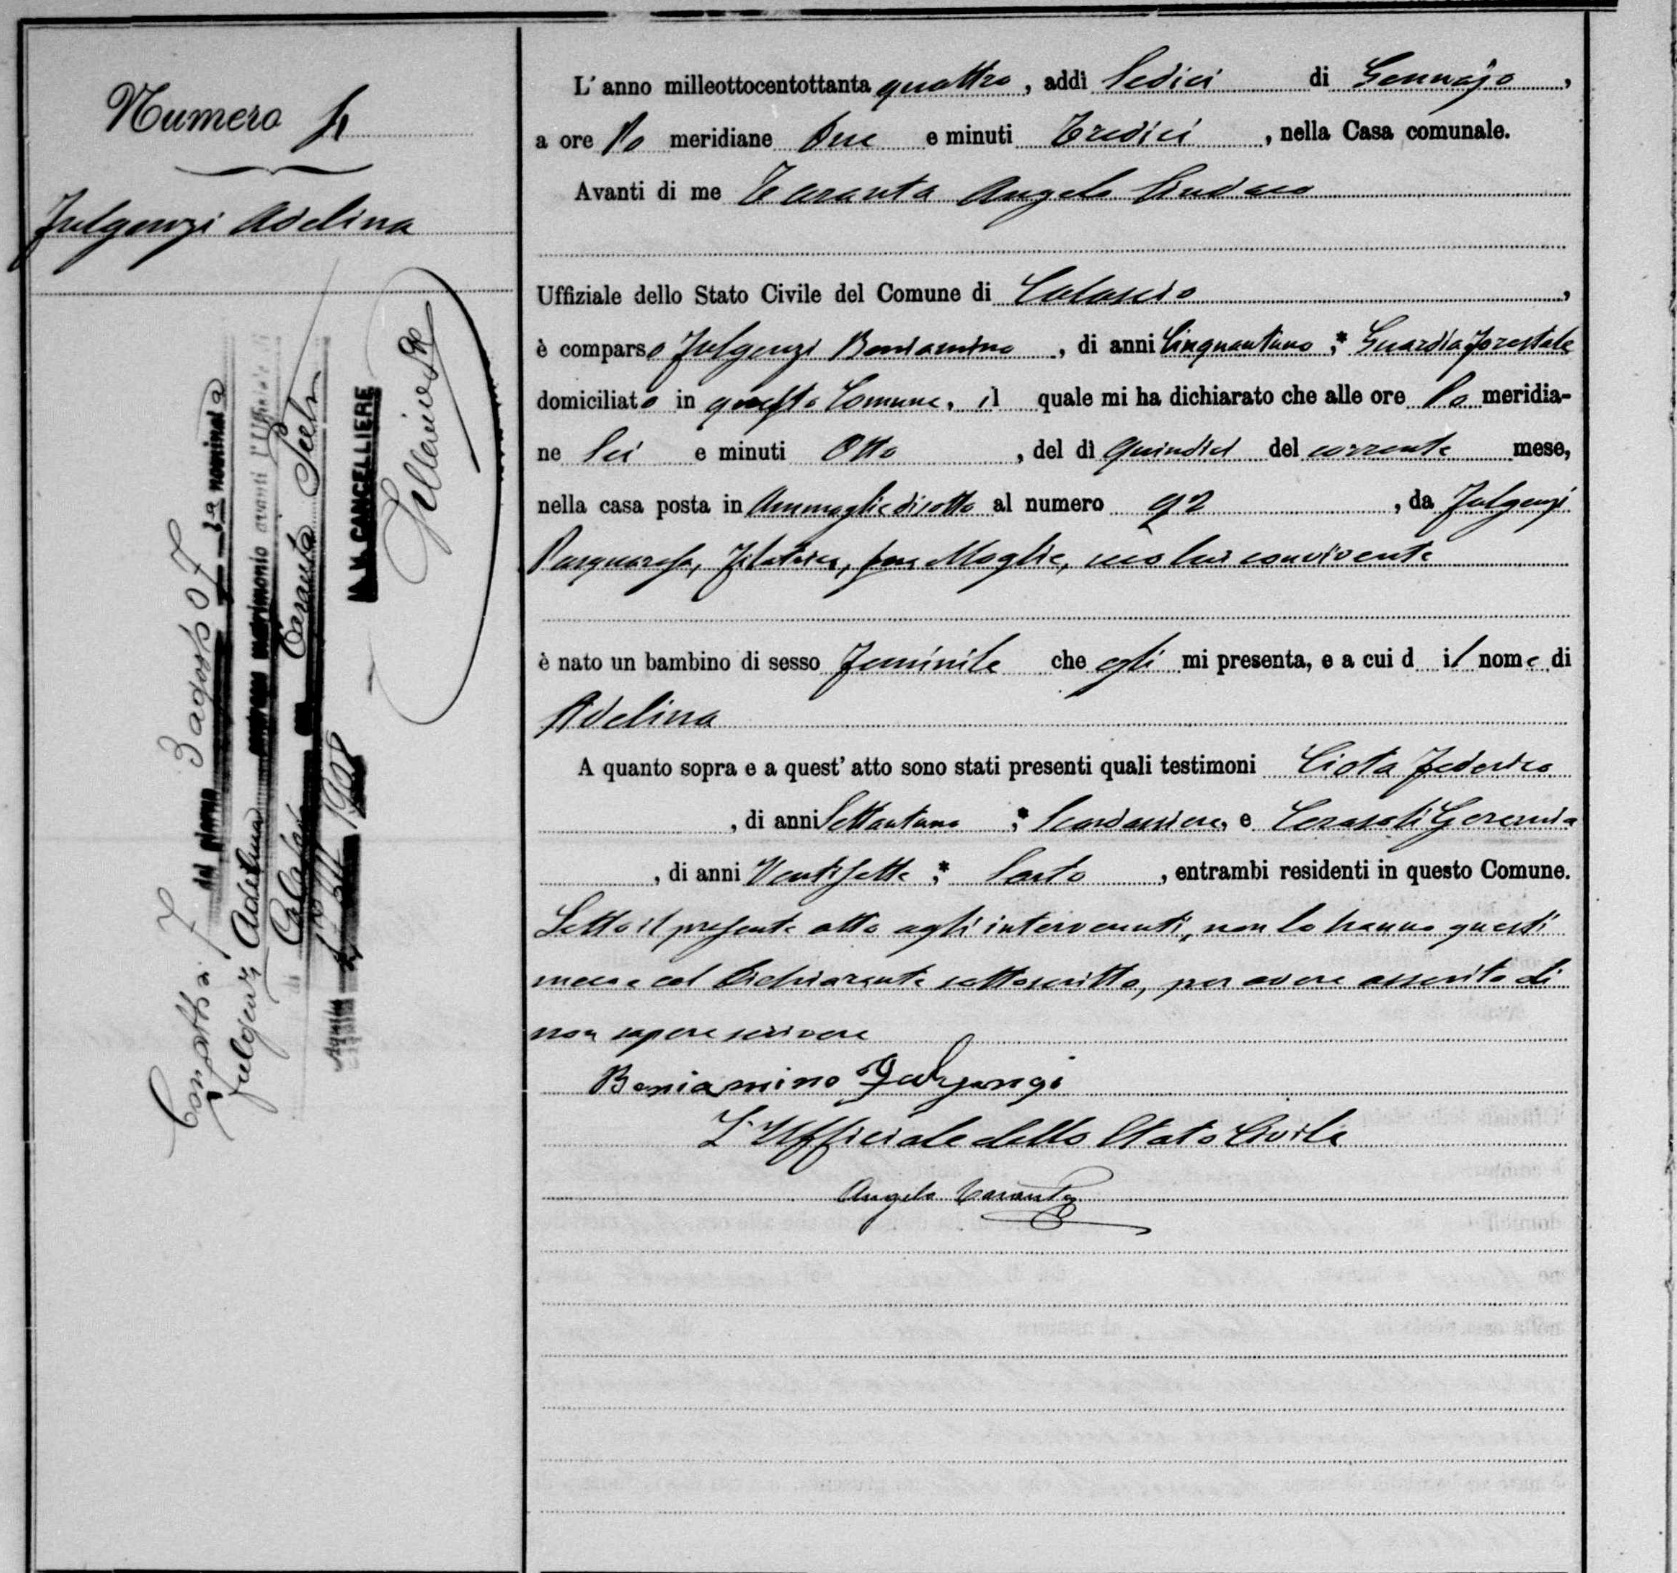 Numero 4
Fulgenzi Adelina
L'anno milleottocentottanta quattro, addì Sedici di Gennajo,
a ore Po meridiane Due e minuti Tredici, nella Casa comunale.
Avanti di me Taranta Angelo Sindaco
Uffiziale dello Stato Civile del Comune di Calascio,
è comparso Fulgenzi Beniamino, di anni Cinquantuno;* Guardia forestale
domiciliato in questo Comune, il quale mi ha dichiarato che alle ore Po meridia-
ne Sei e minuti Otto, del dì quindici del corrente mese,
nella casa posta in al numero 92, da Fulgenzi
Pasquarosa, Filatrice, sua Moglie, seco lui convivente
è nato un bambino di sesso feminile che egli mi presenta, e a cui d il nome di
Adelina
A quanto sopra e a quest' atto sono stati presenti quali testimoni Ciota Federico
, di anni Settantuno;* Scardassiere, e Geremia
, di anni Ventisette;* Sarto, entrambi residenti in questo Comune.
Letto il presente atto agli intervenuti, non lo hanno questi
meco e col Dichiarante sottoscritto, per avere asserito di
non sapere scrivere
Beniamino Fulgenzi
L'Uffiziale dello Stato Civile
Angelo Taranta
del giorno 3 agosto 07 la nominata
Fulgenzi Adelina contrasse matrimonio avanti l'Ufficiale di
Calascio con Taranta
Aquila 1908
IL V. CANCELLIERE